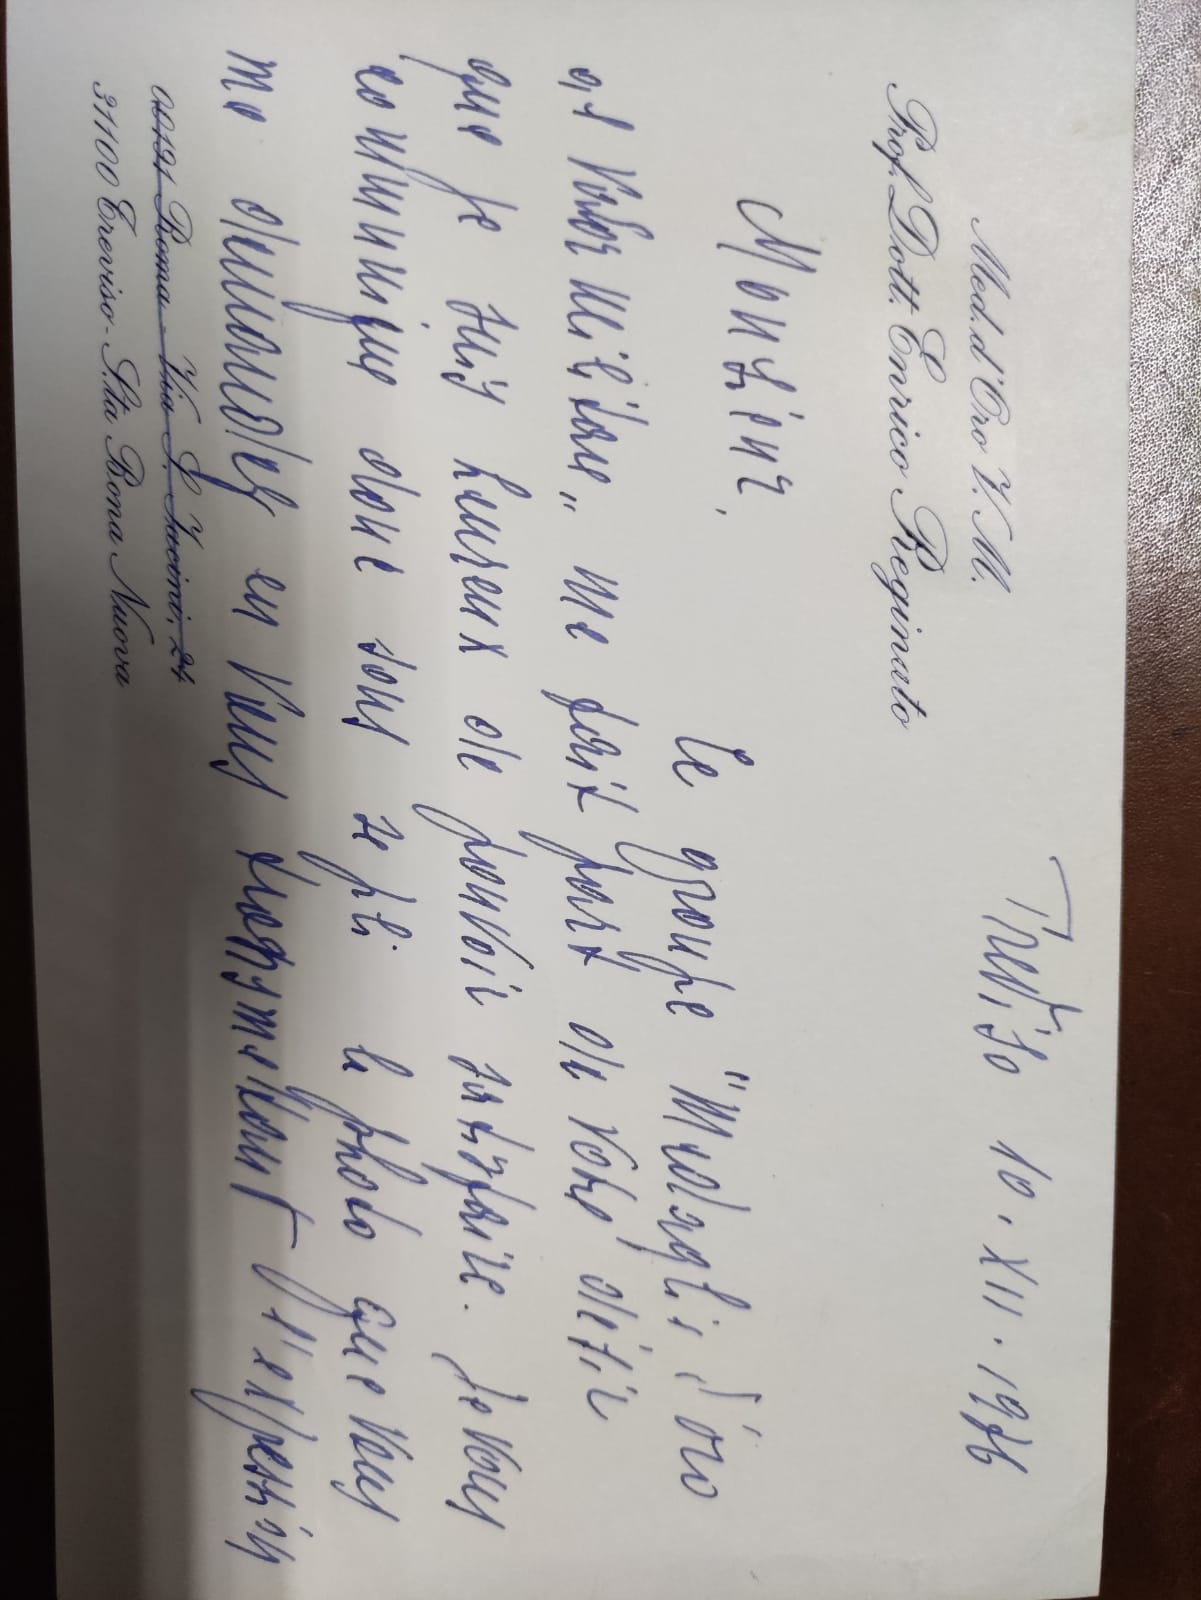 Med. d'Oro V. M.
Prof. Dott. Enrico Reginato
Treviso 10. XII. 1986
Monsieur,
Le groupe "Medaglie d'oro
al Valor Militare" me fait part de votre désir
que je suis heureux de pouvoir satisfaire. Je vous
communique donc sous ce pli la photo que vous
me demandez en vous
l'expression
00191 Roma - Via S. Jacini, 24
31100 Treviso - S.ta Bona Nuova